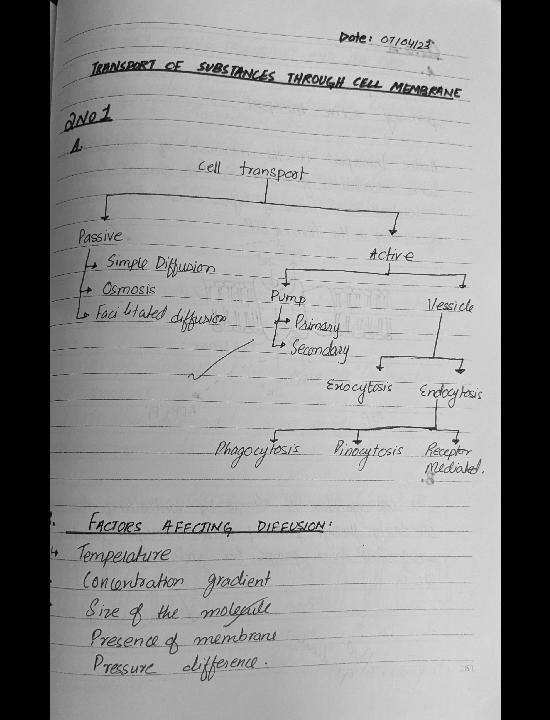 Date: 07/04/23
TRANSPORT OF SUBSTANCES THROUGH CELL MEMBRANE
QNO1
A.
Cell transport
Passive
Active
Simple Diffusion
Osmosis
Facilitated diffusion
Pump
Vessicle
Primary
Secondary
Exocytosis
Endocytosis
Phagocytosis
Pinocytosis
Receptor
Mediated.
FACTORS AFFECTING DIFFUSION:
Temperature
Concentration gradient
Size of the molecule
Presence of membrane
Pressure difference.